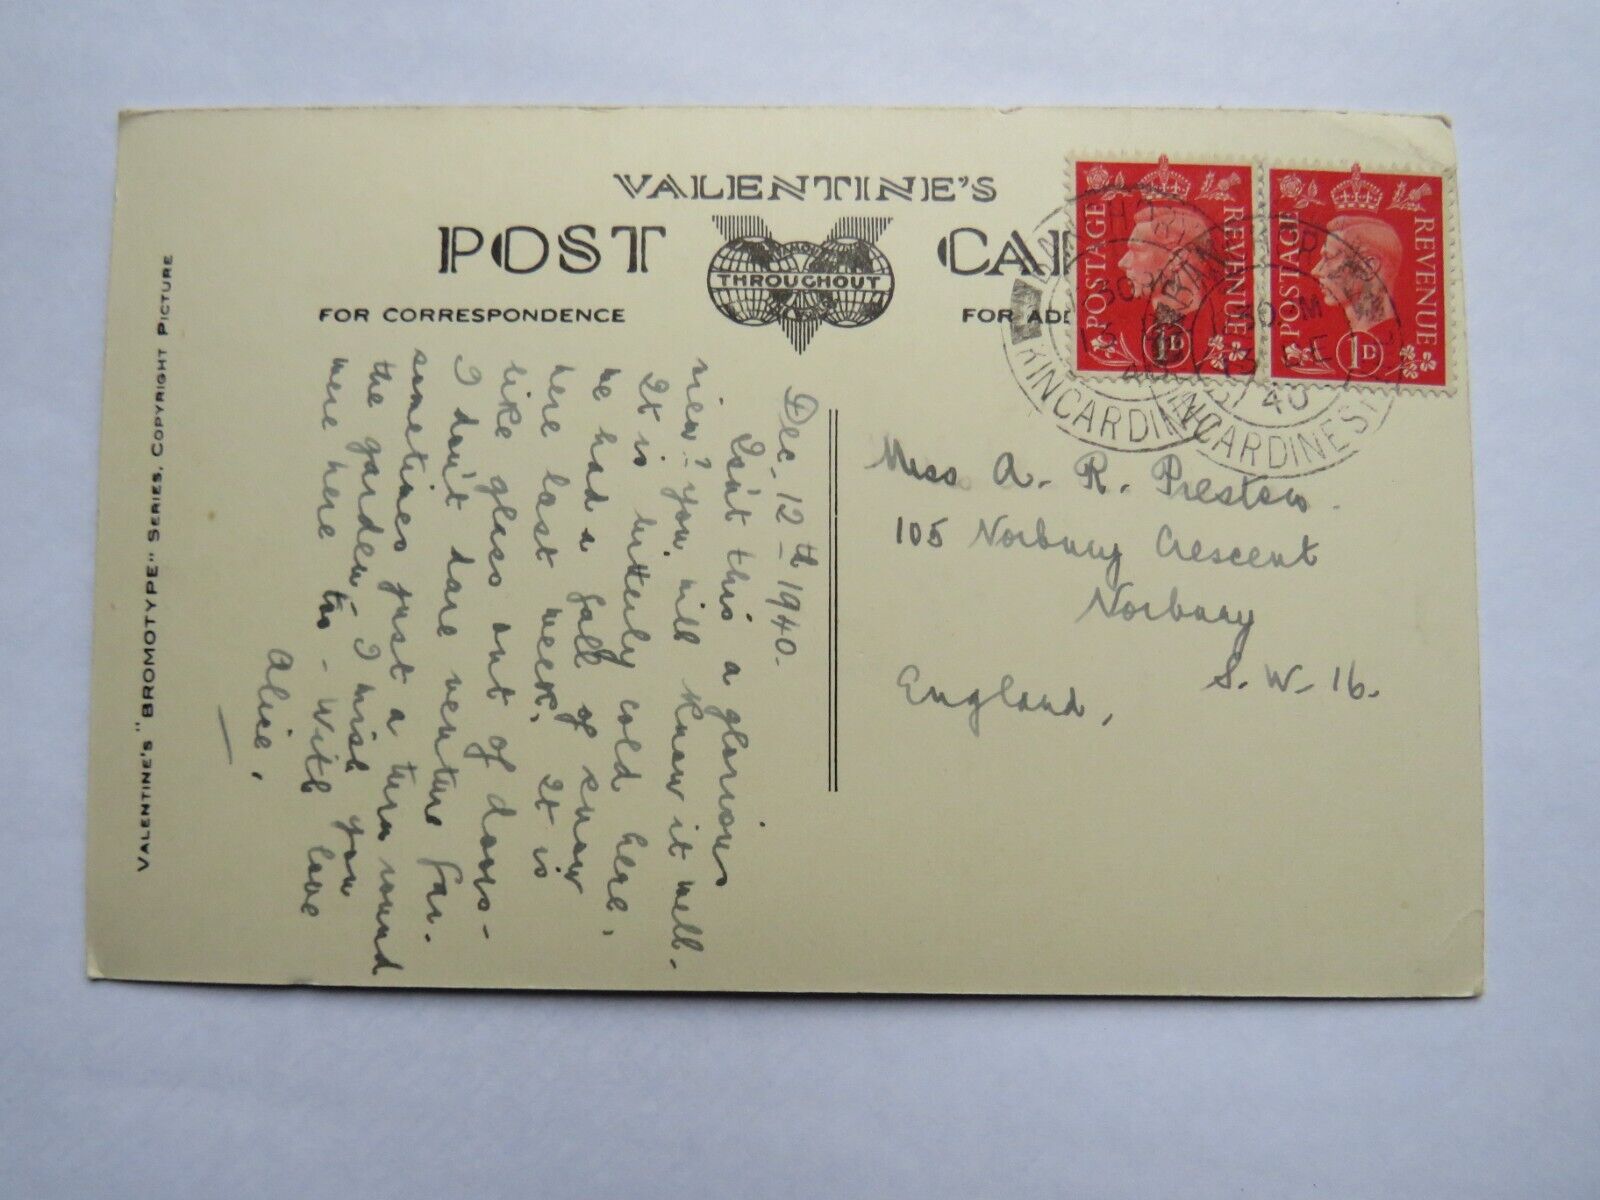 VALENTINE'S
POST
FAMOUS
THROUGHOUT
FOR CORRESPONDENCE
POSTAGE REVENUE
1D
POSTAGE REVENUE
1D
1.30
13 DE
40
KINCARDIN
1.30 M
13 DE
40
KINCARDINESH
Dec. 12th 1940.
Isn't this a glorious
view? You will know it well.
It is bitterly cold here,
we had a fall of snow
here last week. It is
like glass out of doors-
I don't dare venture far.
sometimes just a turn round
the garden, I wish you
were here too - With love
Alice.
Miss A. R. Preston.
105 Norbury Crescent
Norbury
S. W. 16.
England,
VALENTINE'S "BROMOTYPE" SERIES, COPYRIGHT PICTURE